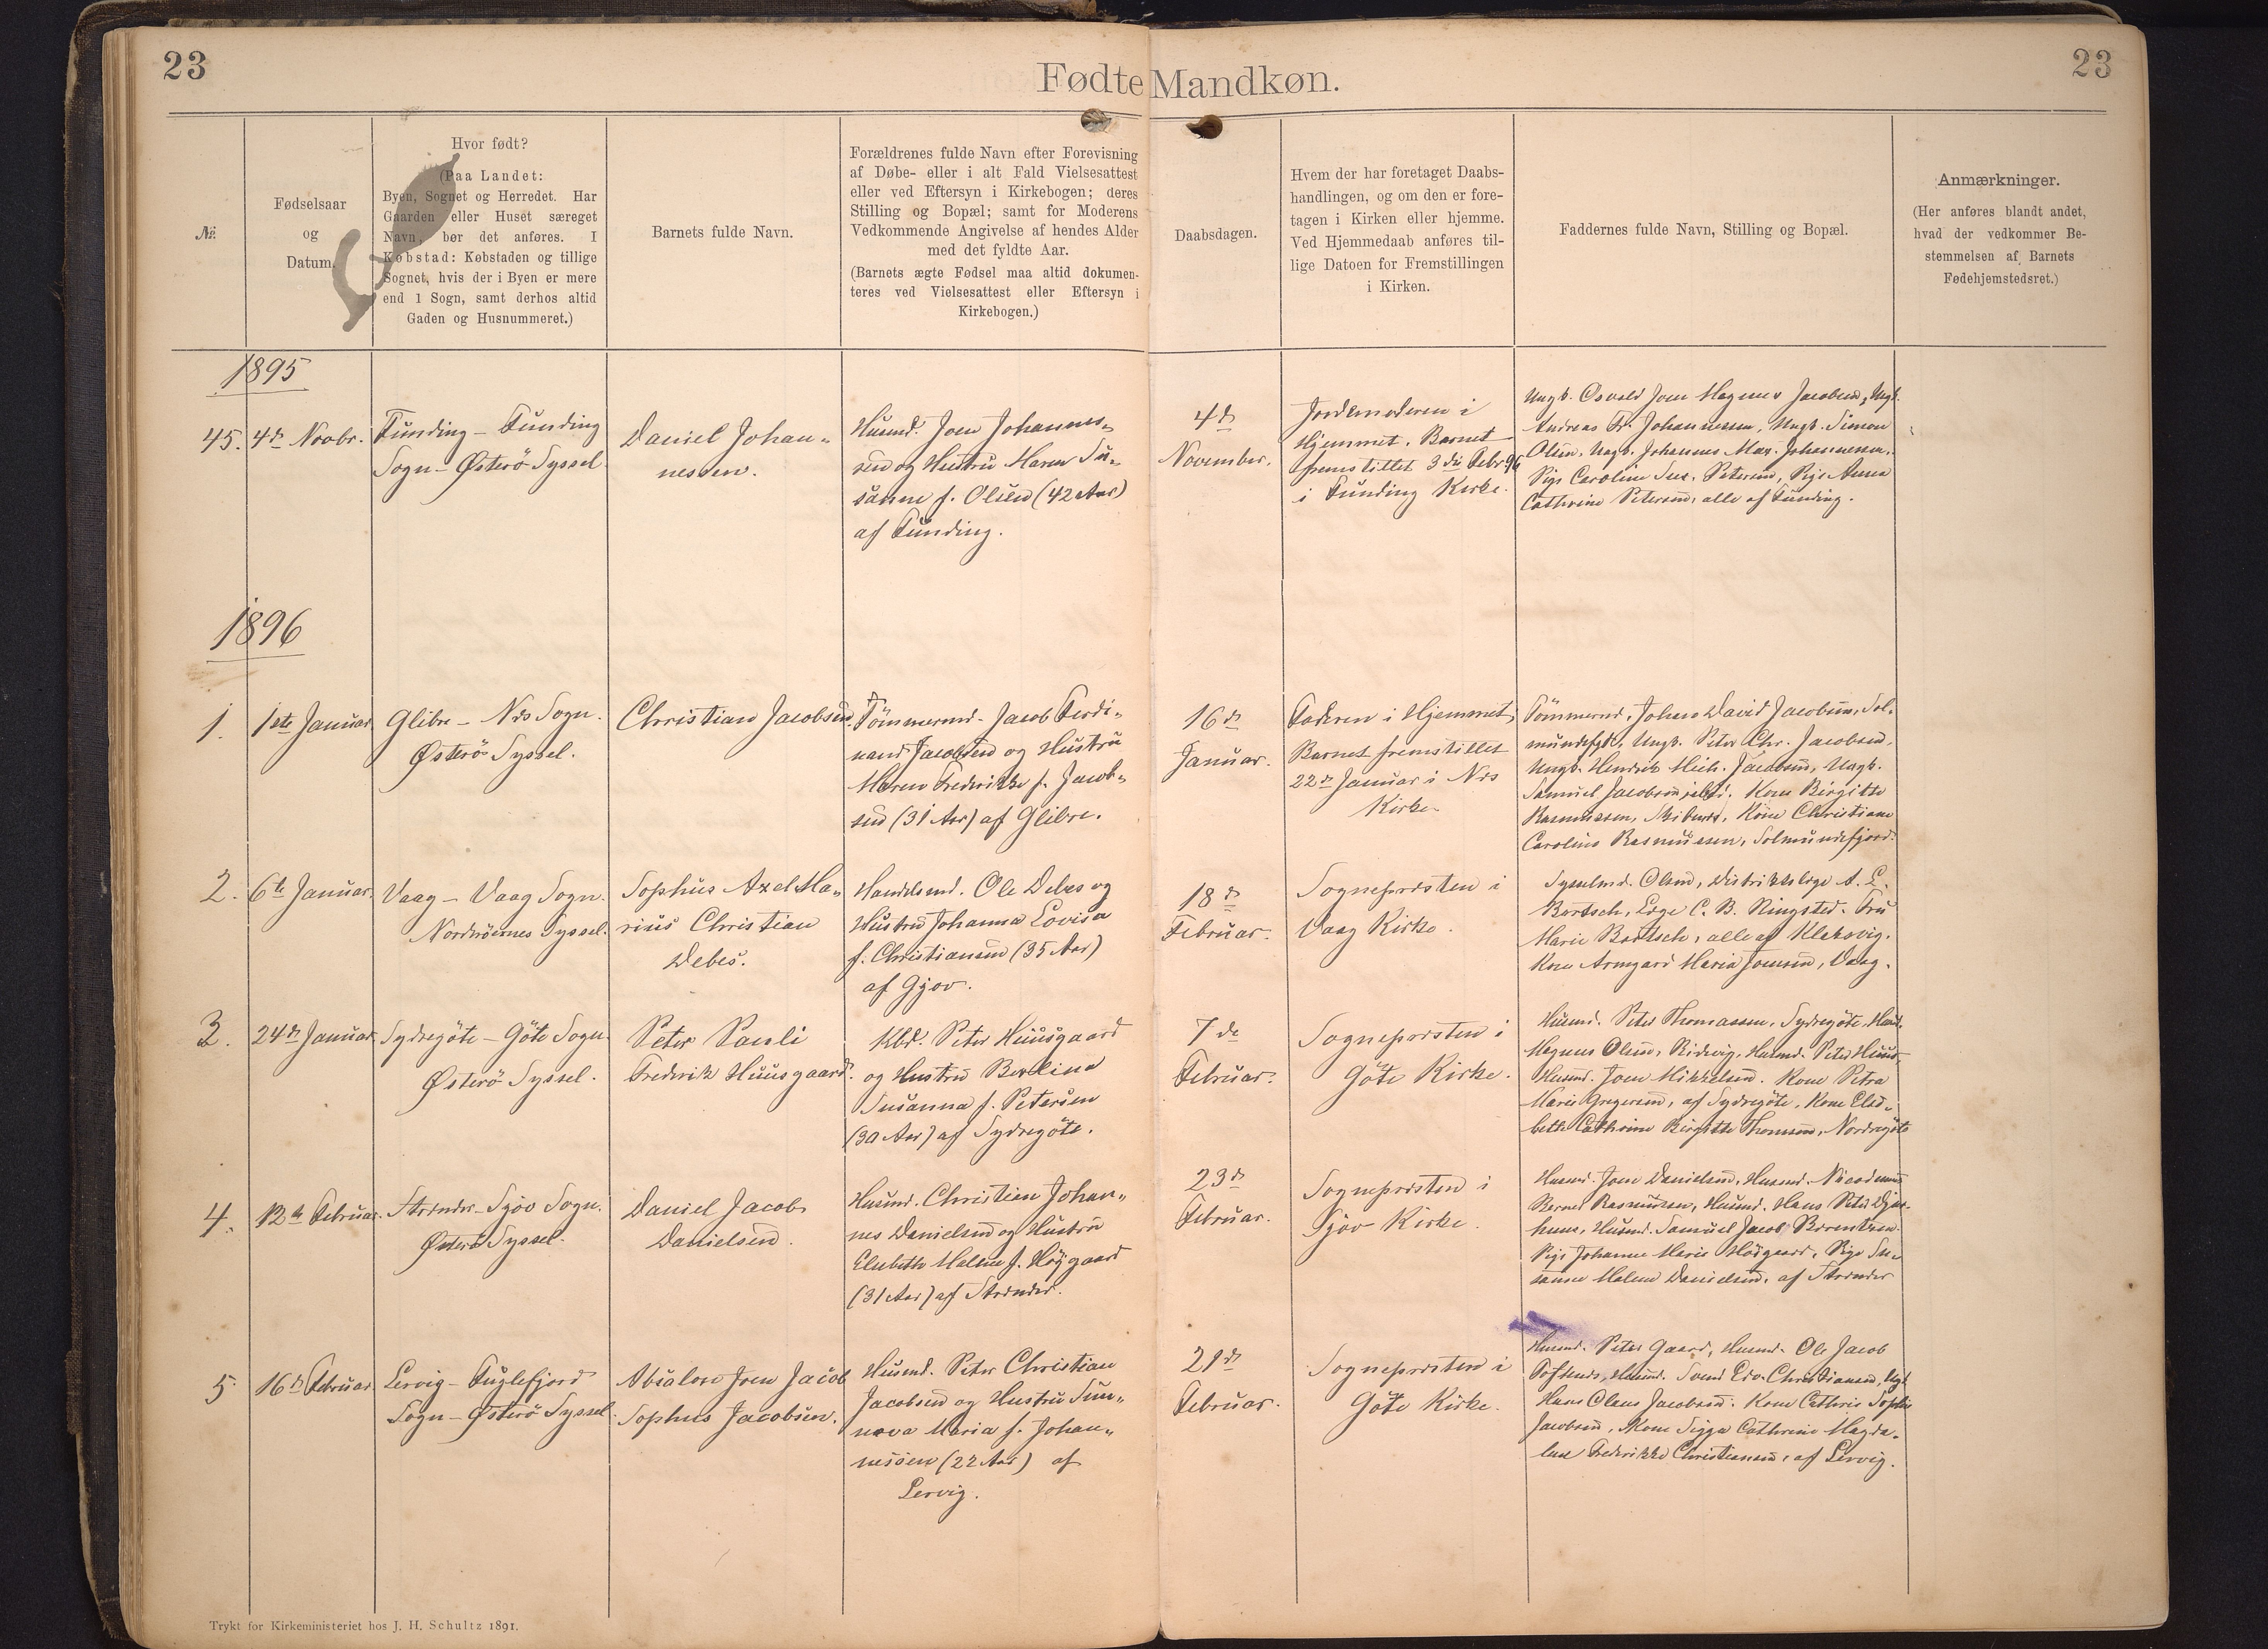 23
Fødte Mandkøn.
23
№.
Fødselsaar
og
Datum.
Hvor født?
(Paa Landet:
Byen, Sognet og Herredet. Har
Gaarden eller Huset særeget
Navn, bør det anføres. I
Købstad: Købstaden og tillige
Sognet, hvis der i Byen er mere
end 1 Sogn, samt derhos altid
Gaden og Husnummeret.)
Barnets fulde Navn.
Forældrenes fulde Navn efter Forevisning
af Døbe- eller i alt Fald Vielsesattest
eller ved Eftersyn i Kirkebogen; deres
Stilling og Bopæl; samt for Moderens
Vedkommende Angivelse af hendes Alder
med det fyldte Aar.
(Barnets ægte Fødsel maa altid dokumen-
teres ved Vielsesattest eller Eftersyn i
Kirkebogen.)
Daabsdagen.
Hvem der har foretaget Daabs-
handlingen, og om den er fore-
tagen i Kirken eller hjemme.
Ved Hjemmedaab anføres til-
lige Datoen for Fremstillingen
i Kirken.
Faddernes fulde Navn, Stilling og Bopæl.
Anmærkninger.
(Her anføres blandt andet,
hvad der vedkommer Be-
stemmelsen af Barnets
Fødehjemstedsret.)
1895
45.
4de Novbr.
Funding – Funding
Sogn – Østerö Syssel.
Daniel Johan-
nessen.
Husmd. Joen Johannes-
sen og Hustru Maren Su-
sanne f. Olsen (42 Aar)
af Funding.
4de
November.
Jordemoderen i
Hjemmet. Barnet
fremstillet 3die Febr 96
i Funding Kirke.
Ungk. Osvald Joen Magnus Jacobsen, Ungk.
Andreas Fr. Johannessen, Ungk. Simon
Olsen, Ungk. Johannes Mar. Johannesen,
Pige Caroline Sus. Petersen, Pige Anna
Cathrine Petersen, alle af Funding.
1896
1.
1ste Januar
Glibre – Nes Sogn.
Østerö Syssel.
Christian Jacobsen.
Tömmermd. Jacob Ferdi-
nand Jacobsen og Hustru
Maren Frederikke f. Jacob-
sen (31 Aar) af Glibre.
16de
Januar.
Faderen i Hjemmet,
Barnet fremstillet
22de Januar i Nes
Kirke.
Tömmermd. Johan David Jacobsen, Sol-
mundefjord, Ungk. Peter Chr. Jacobsen,
Ungk. Hendrik Mich. Jacobsen, Ungk.
Samuel Jacobsen, Kone Birgitte
Rasmussen, Kone Christiane
Caroline Rasmussen, Solmundefjord.
2.
6te Januar.
Vaag – Vaag Sogn.
Norderöernes Syssel.
Sophus Axel Ma-
rius Christian
Debes.
Handelsmd. Ole Debes og
Hustru Johanna Lovisa
f. Christiansen (35 Aar)
af Gjov.
18de
Februar.
Sognepresten i
Vaag Kirke.
Sysselmd. Olsen, Distriktslæge A. L.
Bærtsch, Læge C. B. Ringsted. Fru
Marie Bærtsch, alle af Klaksvig.
Kone Armgard Maria Joensen, Vaag.
3.
24de Januar
Sydregöte – Göte Sogn.
Østerö Syssel.
Peter Pauli
Frederik Huusgaard.
Kbd. Peter Huusgaard
og Hustru Berlina
Susanna f. Petersen
(30 Aar) af Sydregöte.
7de
Februar.
Sognepresten i
Göte Kirke.
Husmd. Peter Thomassen, Sydregöte,
Magnus Olsen, Ridevig, Husmd. Peter Huus,
Husmd. Joen Mikkelsen. Kone Petra
Marie Gregersen, af Sydregöte, Kone Elsa-
beth Cathrine Birgitte Thomsen, Nordregöte
4.
12te Februar.
Strender – Sjov Sogn.
Østerö Syssel.
Daniel Jacob
Danielsen.
Husmd. Christian Johan-
nes Danielsen og Hustru
Elsebeth Malene f. Höjgaard
(31 Aar) af Strender.
23de
Februar.
Sognepresten i
Sjov Kirke.
Husmd. Joen Danielsen, Husmd. Nicodemus
Berner Rasmussen, Husmd. Hans Peter Djur-
huus, Husmd. Samuel Jacob Berentsen
Pige Johanne Marie Höjgaard, Pige Su-
sanne Malene Danielsen, af Strender
5.
16de Februar
Lervig – Fuglefjord
Sogn – Østerö Syssel.
Absalon Joen Jacob
Sophus Jacobsen.
Husmd. Peter Christian
Jacobsen og Hustru Sun-
neva Maria f. Johan-
nessen (22 Aar) af
Lervig.
21de
Februar.
Sognepresten i
Göte Kirke.
Husmd. Peter Gaard, Husmd. Ole Jacob
Toftenes, Husmd. Svend Edv. Christiansen, Ungk
Hans Claus Jacobsen. Kone Cathrie Sophie
Jacobsen, Kone Sigga Cathrine Magda-
lene Frederikke Christiansen, af Lervig.
Trykt for Kirkeministeriet hos J. H. Schultz 1891.